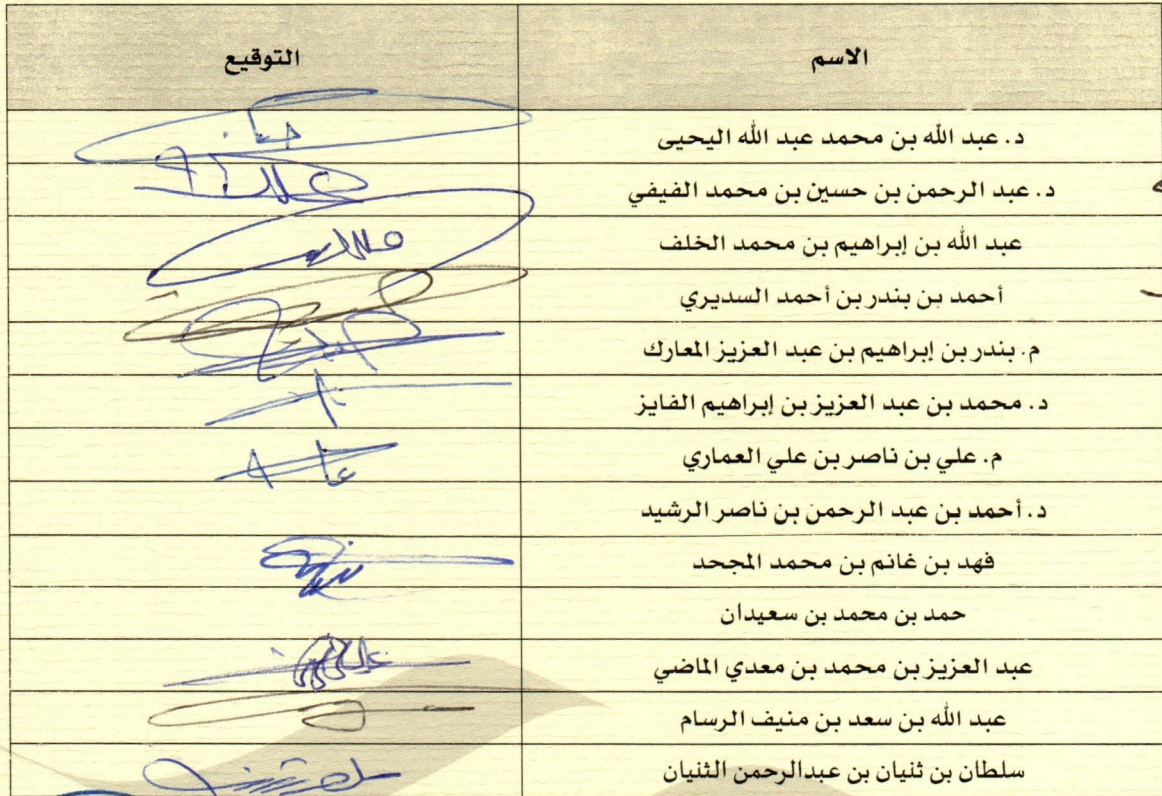 الاسم التوقيع
د. عبد الله بن محمد عبد الله اليحيى
د. عبد الرحمن بن حسين بن محمد الفيفي
عبد الله بن إبراهيم بن محمد الخلف
أحمد بن بندر بن أحمد السديري
م. بندر بن إبراهيم بن عبد العزيز المعارك
د. محمد بن عبد العزيز بن إبراهيم الفايز
م. علي بن ناصر بن علي العماري
د. أحمد بن عبد الرحمن بن ناصر الرشيد
فهد بن غانم بن محمد المجحد
حمد بن محمد بن سعيدان
عبد العزيز بن محمد بن معدي الماضي
عبد الله بن سعد بن منيف الرسام
سلطان بن ثنيان بن عبدالرحمن الثنيان